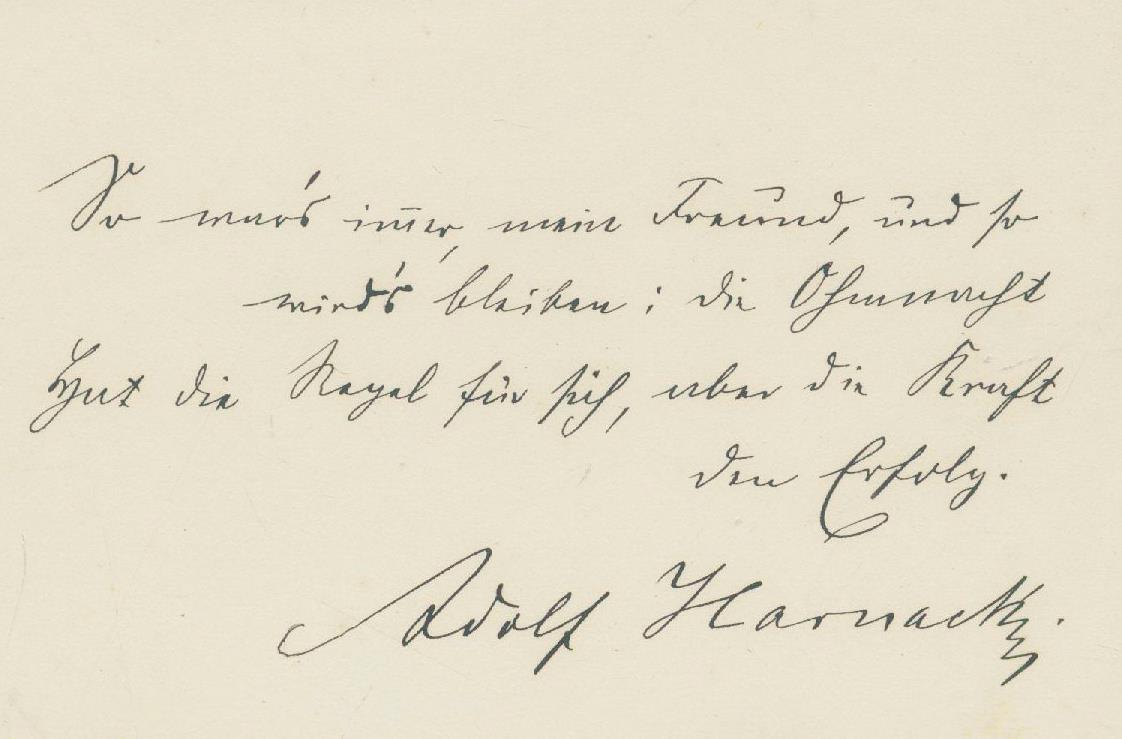 So war's im̄er, mein Freund, und so
wird's bleiben: die Ohnmacht
Hat die Regel für sich, aber die Kraft
den Erfolg.
Adolf Harnack.